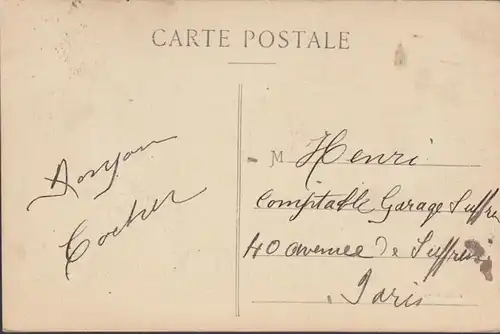 CARTE POSTALE
Bonjour
Cocher
M Henri
Comptable Garage Suffren
40 avenue de Suffren
Paris